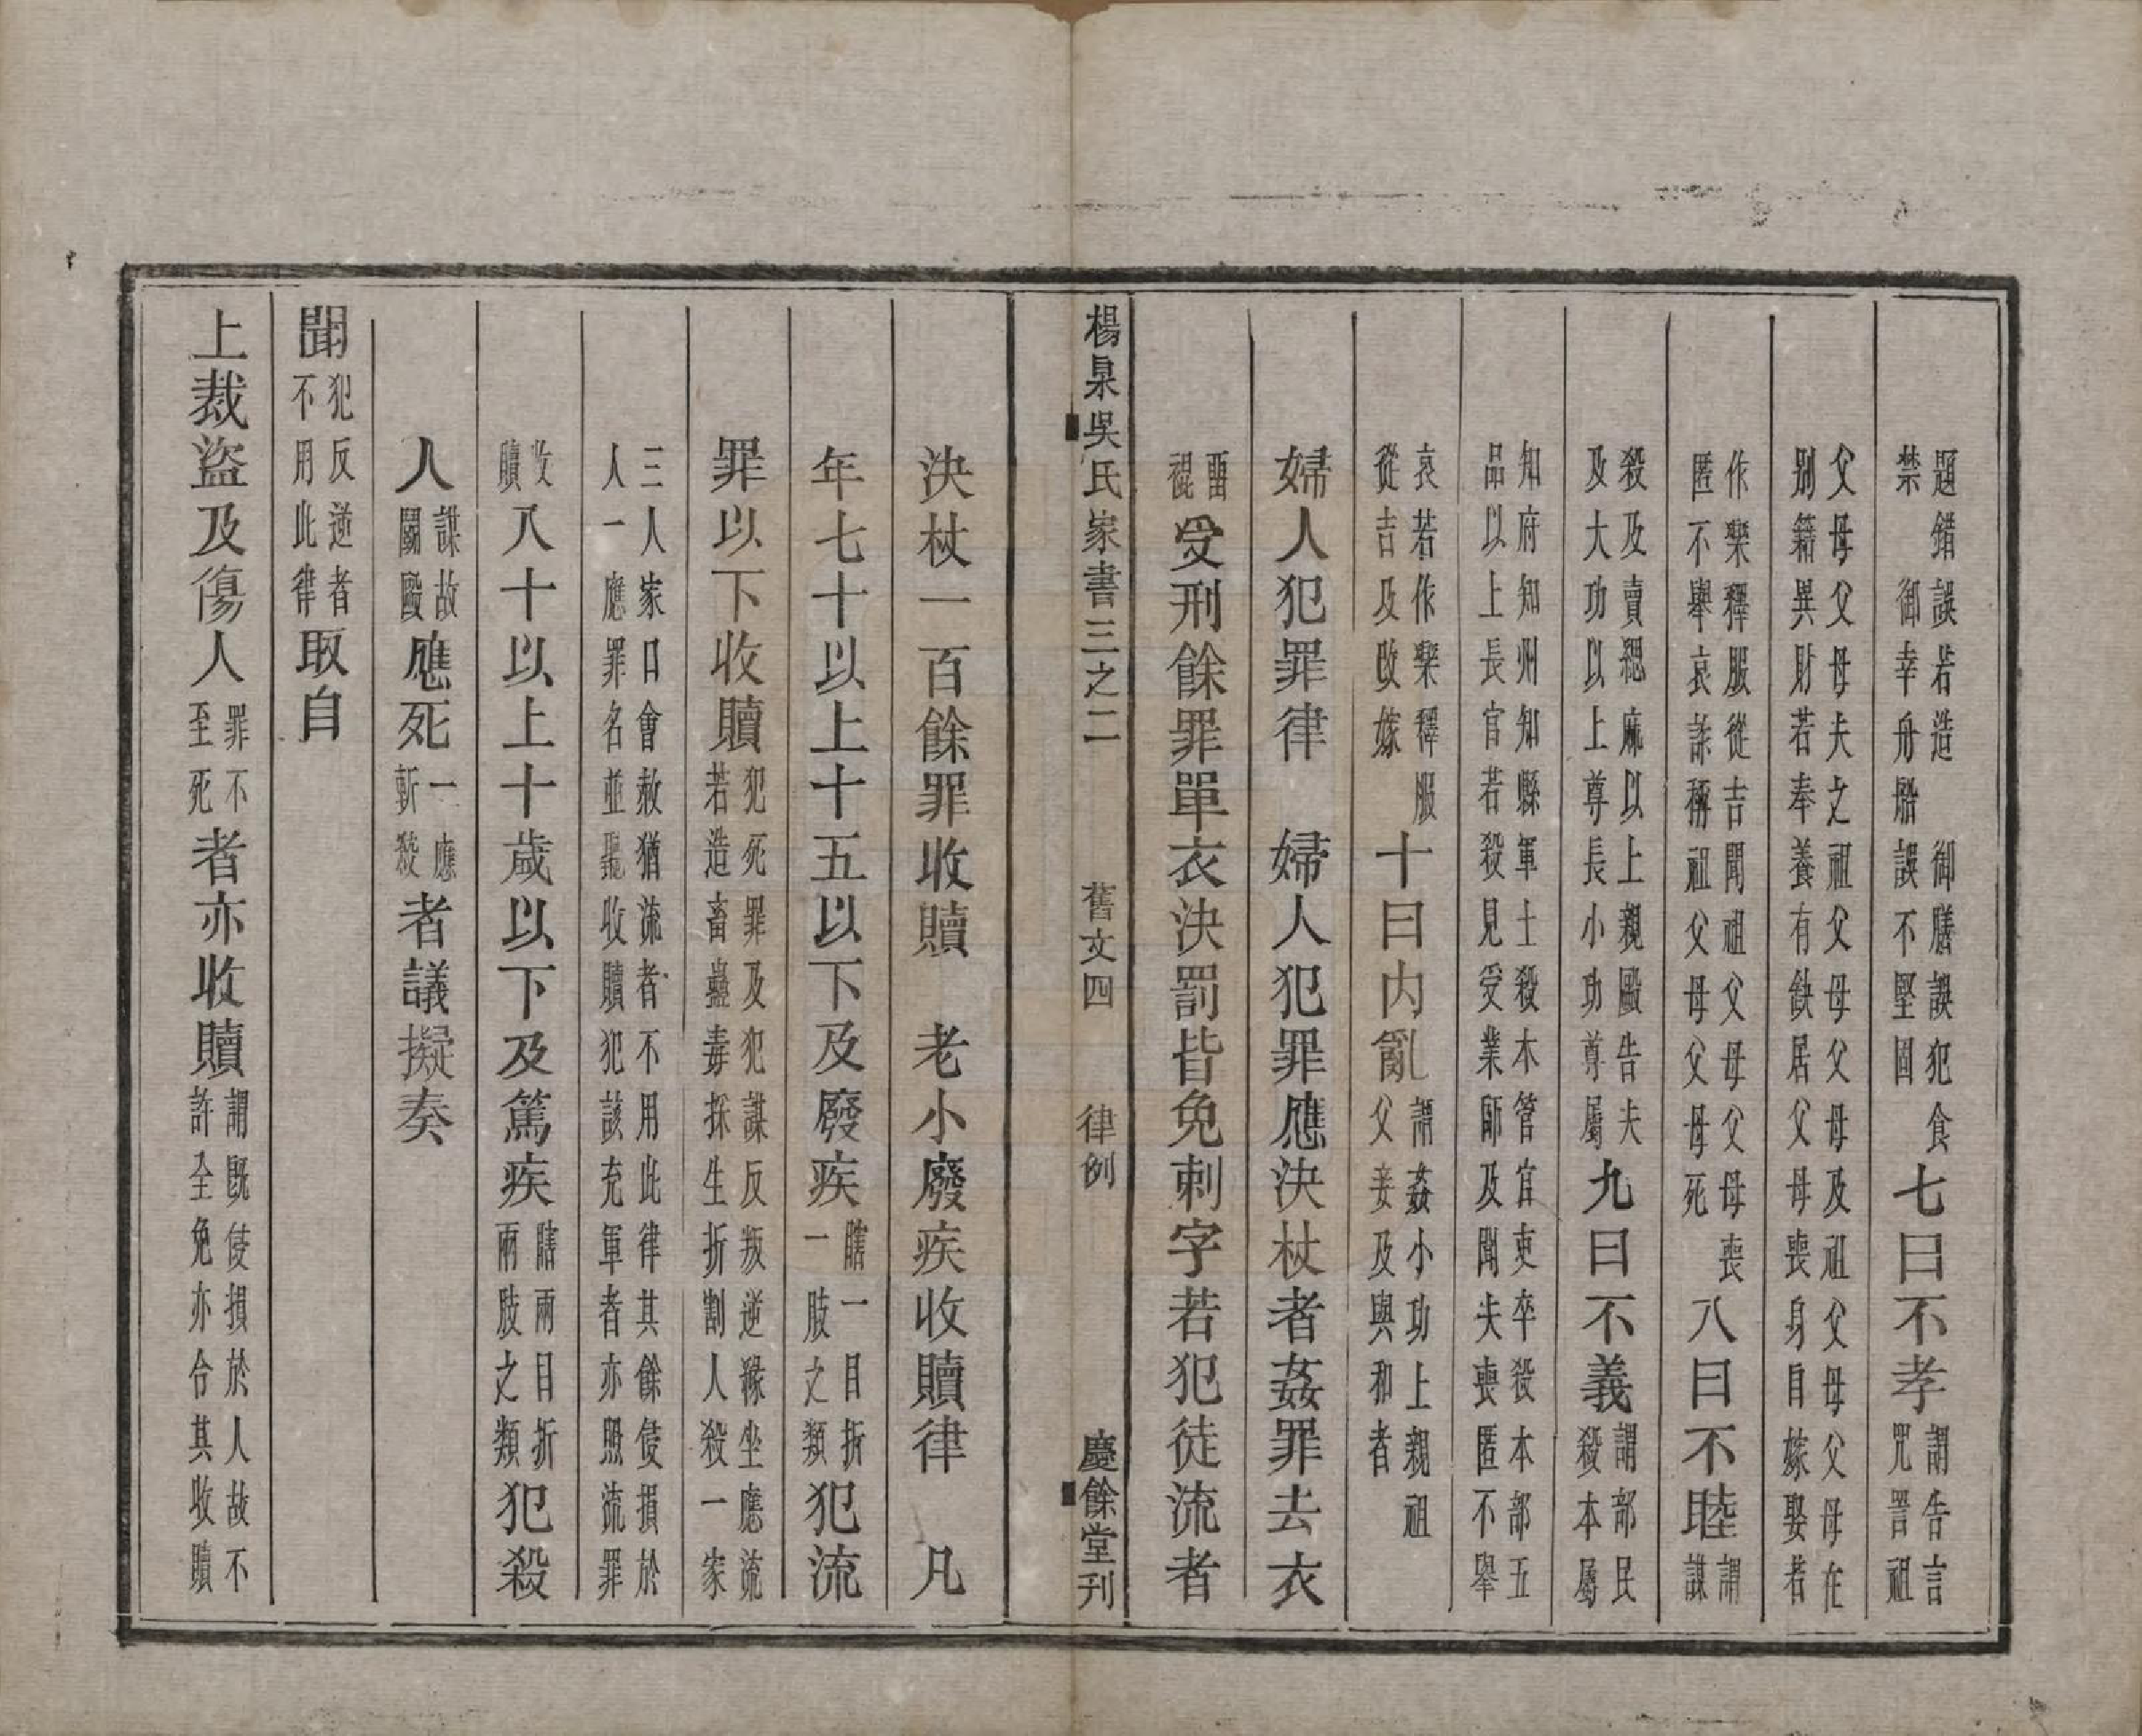 題錯誤若造　御膳誤犯食
禁　御幸舟船誤不堅固
七曰不孝
謂告言
咒詈祖
父母父母夫之祖父母父母及祖父母父母在
別籍異財若奉養有缺居父母喪身自嫁娶若
作樂釋服從吉聞祖父母父母喪
匿不舉哀詐稱祖父母父母死
八曰不睦
謂
謀
殺及賣緦麻以上親毆告夫
及大功以上尊長小功尊屬
九曰不義
謂部民
殺本屬
知府知州知縣軍士殺本管官吏卒殺本部五
品以上長官若殺見受業師及聞夫喪匿不舉
哀若作樂釋服
從吉及改嫁
十曰內亂
謂姦小功上親祖
父妾及與和者
婦人犯罪律　婦人犯罪應決杖者姦罪去衣
畱
裩
受刑餘罪單衣決罰皆免刺字若犯徒流者
楊泉吳氏家書三之二　舊文四　律例　慶餘堂刊
決杖一百餘罪收贖　老小廢疾收贖律　凡
年七十以上十五以下及廢疾
瞎一目折
一肢之類
犯流
罪以下收贖
犯死罪及犯謀反叛逆緣坐應流
若造畜蠱毒採生折割人殺一家
三人家口會赦猶流者不用此律其餘侵損於
人一應罪名並聽收贖犯該充軍者亦照流罪
收
贖
八十以上十歲以下及篤疾
瞎兩目折
兩肢之類
犯殺
人
謀故
鬭毆
應死
一應
斬殺
者議擬奏
聞
犯反逆者
不用此律
取自
上裁盜及傷人
罪不
至死
者亦收贖
謂既侵損於人故不
許全免亦合其收贖